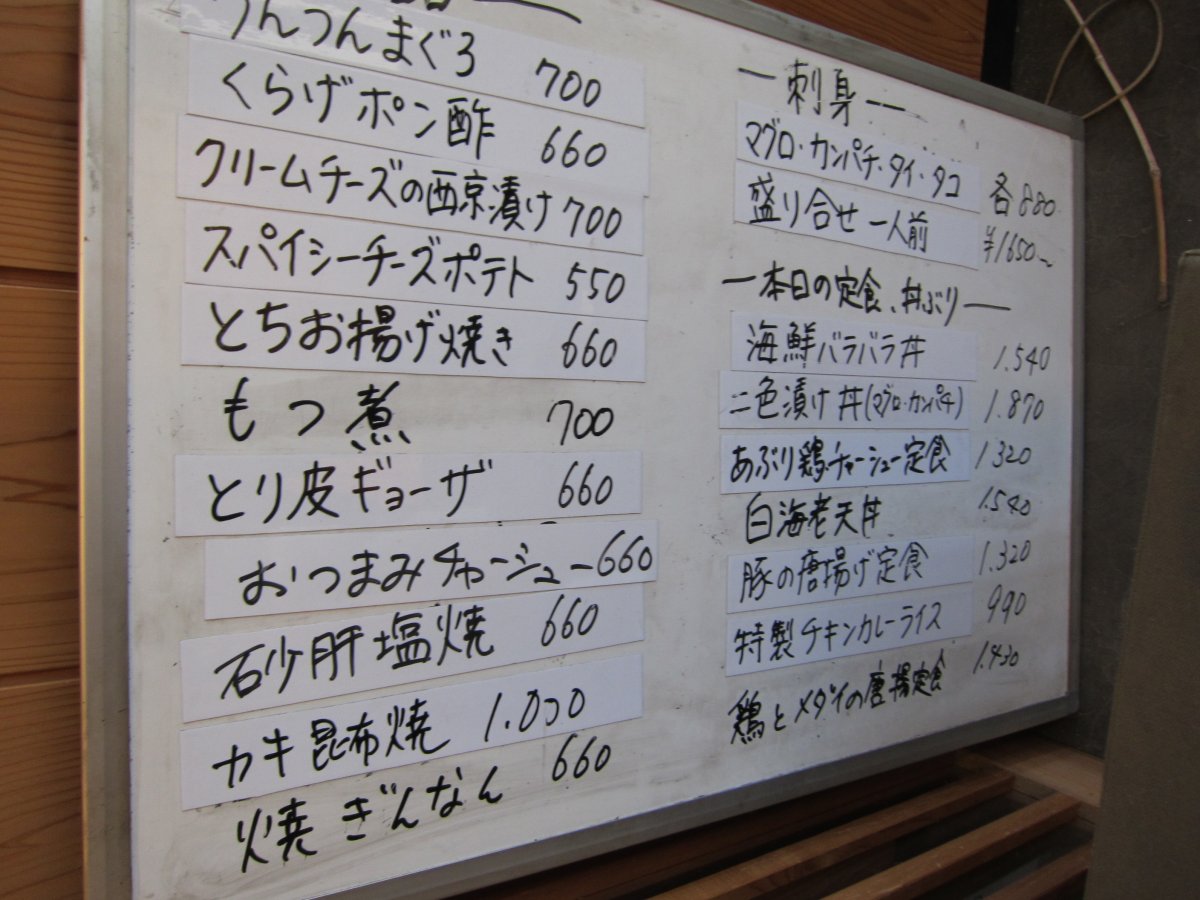 つんつんまぐろ 700
くらげポン酢 660
クリームチーズの西京漬け 700
スパイシーチーズポテト 550
とちお揚げ焼き 660
もつ煮 700
とり皮ギョーザ 660
おつまみチャーシュー 660
石少肝塩焼 660
カキ昆布焼 1.000
焼ぎんなん 660
ー刺身ーー
マグロ・カンパチ・タイ・タコ 各880
盛り合せ一人前 ¥1650~
ー本日の定食、丼ぶりー
海鮮バラバラ丼 1.540
二色漬け丼(マグロ・カンパチ) 1.870
あぶり鶏チャーシュー定食 1320
白海老天丼 1.540
豚の唐揚げ定食 1.320
特製チキンカレーライス 990
鶏とメダイの唐揚定食 1.430